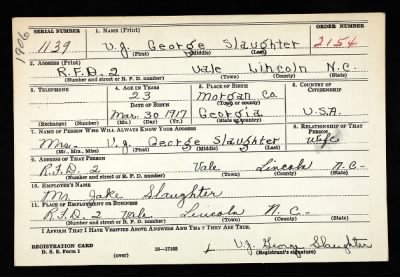 1906
SERIAL NUMBER 1. NAME (Print) ORDER NUMBER
1139 V.J. George Slaughter 2154
(First) (Middle) (Last)
2. ADDRESS (Print)
R.F.D. 2 Vale Lincoln N.C.
(Number and street or R. F. D. number) (Town) (County) (State)
3. TELEPHONE 4. AGE IN YEARS 5. PLACE OF BIRTH 6. COUNTRY OF CITIZENSHIP
23 Morgan Co.
DATE OF BIRTH (Town or county)
Mar. 30 1917 Georgia U.S.A.
(Exchange) (Number) (Mo.) (Day) (Yr.) (State or country)
7. NAME OF PERSON WHO WILL ALWAYS KNOW YOUR ADDRESS 8. RELATIONSHIP OF THAT PERSON
Mrs. V.J. George Slaughter Wife
(Mr., Mrs., Miss) (First) (Middle) (Last)
9. ADDRESS OF THAT PERSON
R.F.D. 2 Vale Lincoln N.C.
(Number and street or R. F. D. number) (Town) (County) (State)
10. EMPLOYER'S NAME
Mr. Jake Slaughter
11. PLACE OF EMPLOYMENT OR BUSINESS
R.F.D. 2 Vale Lincoln N.C.
(Number and street or R. F. D. number) (Town) (County) (State)
I AFFIRM THAT I HAVE VERIFIED ABOVE ANSWERS AND THAT THEY ARE TRUE.
REGISTRATION CARD
D. S. S. Form 1 (over) 16—17105 V.J. George Slaughter
(Registrant's signature)